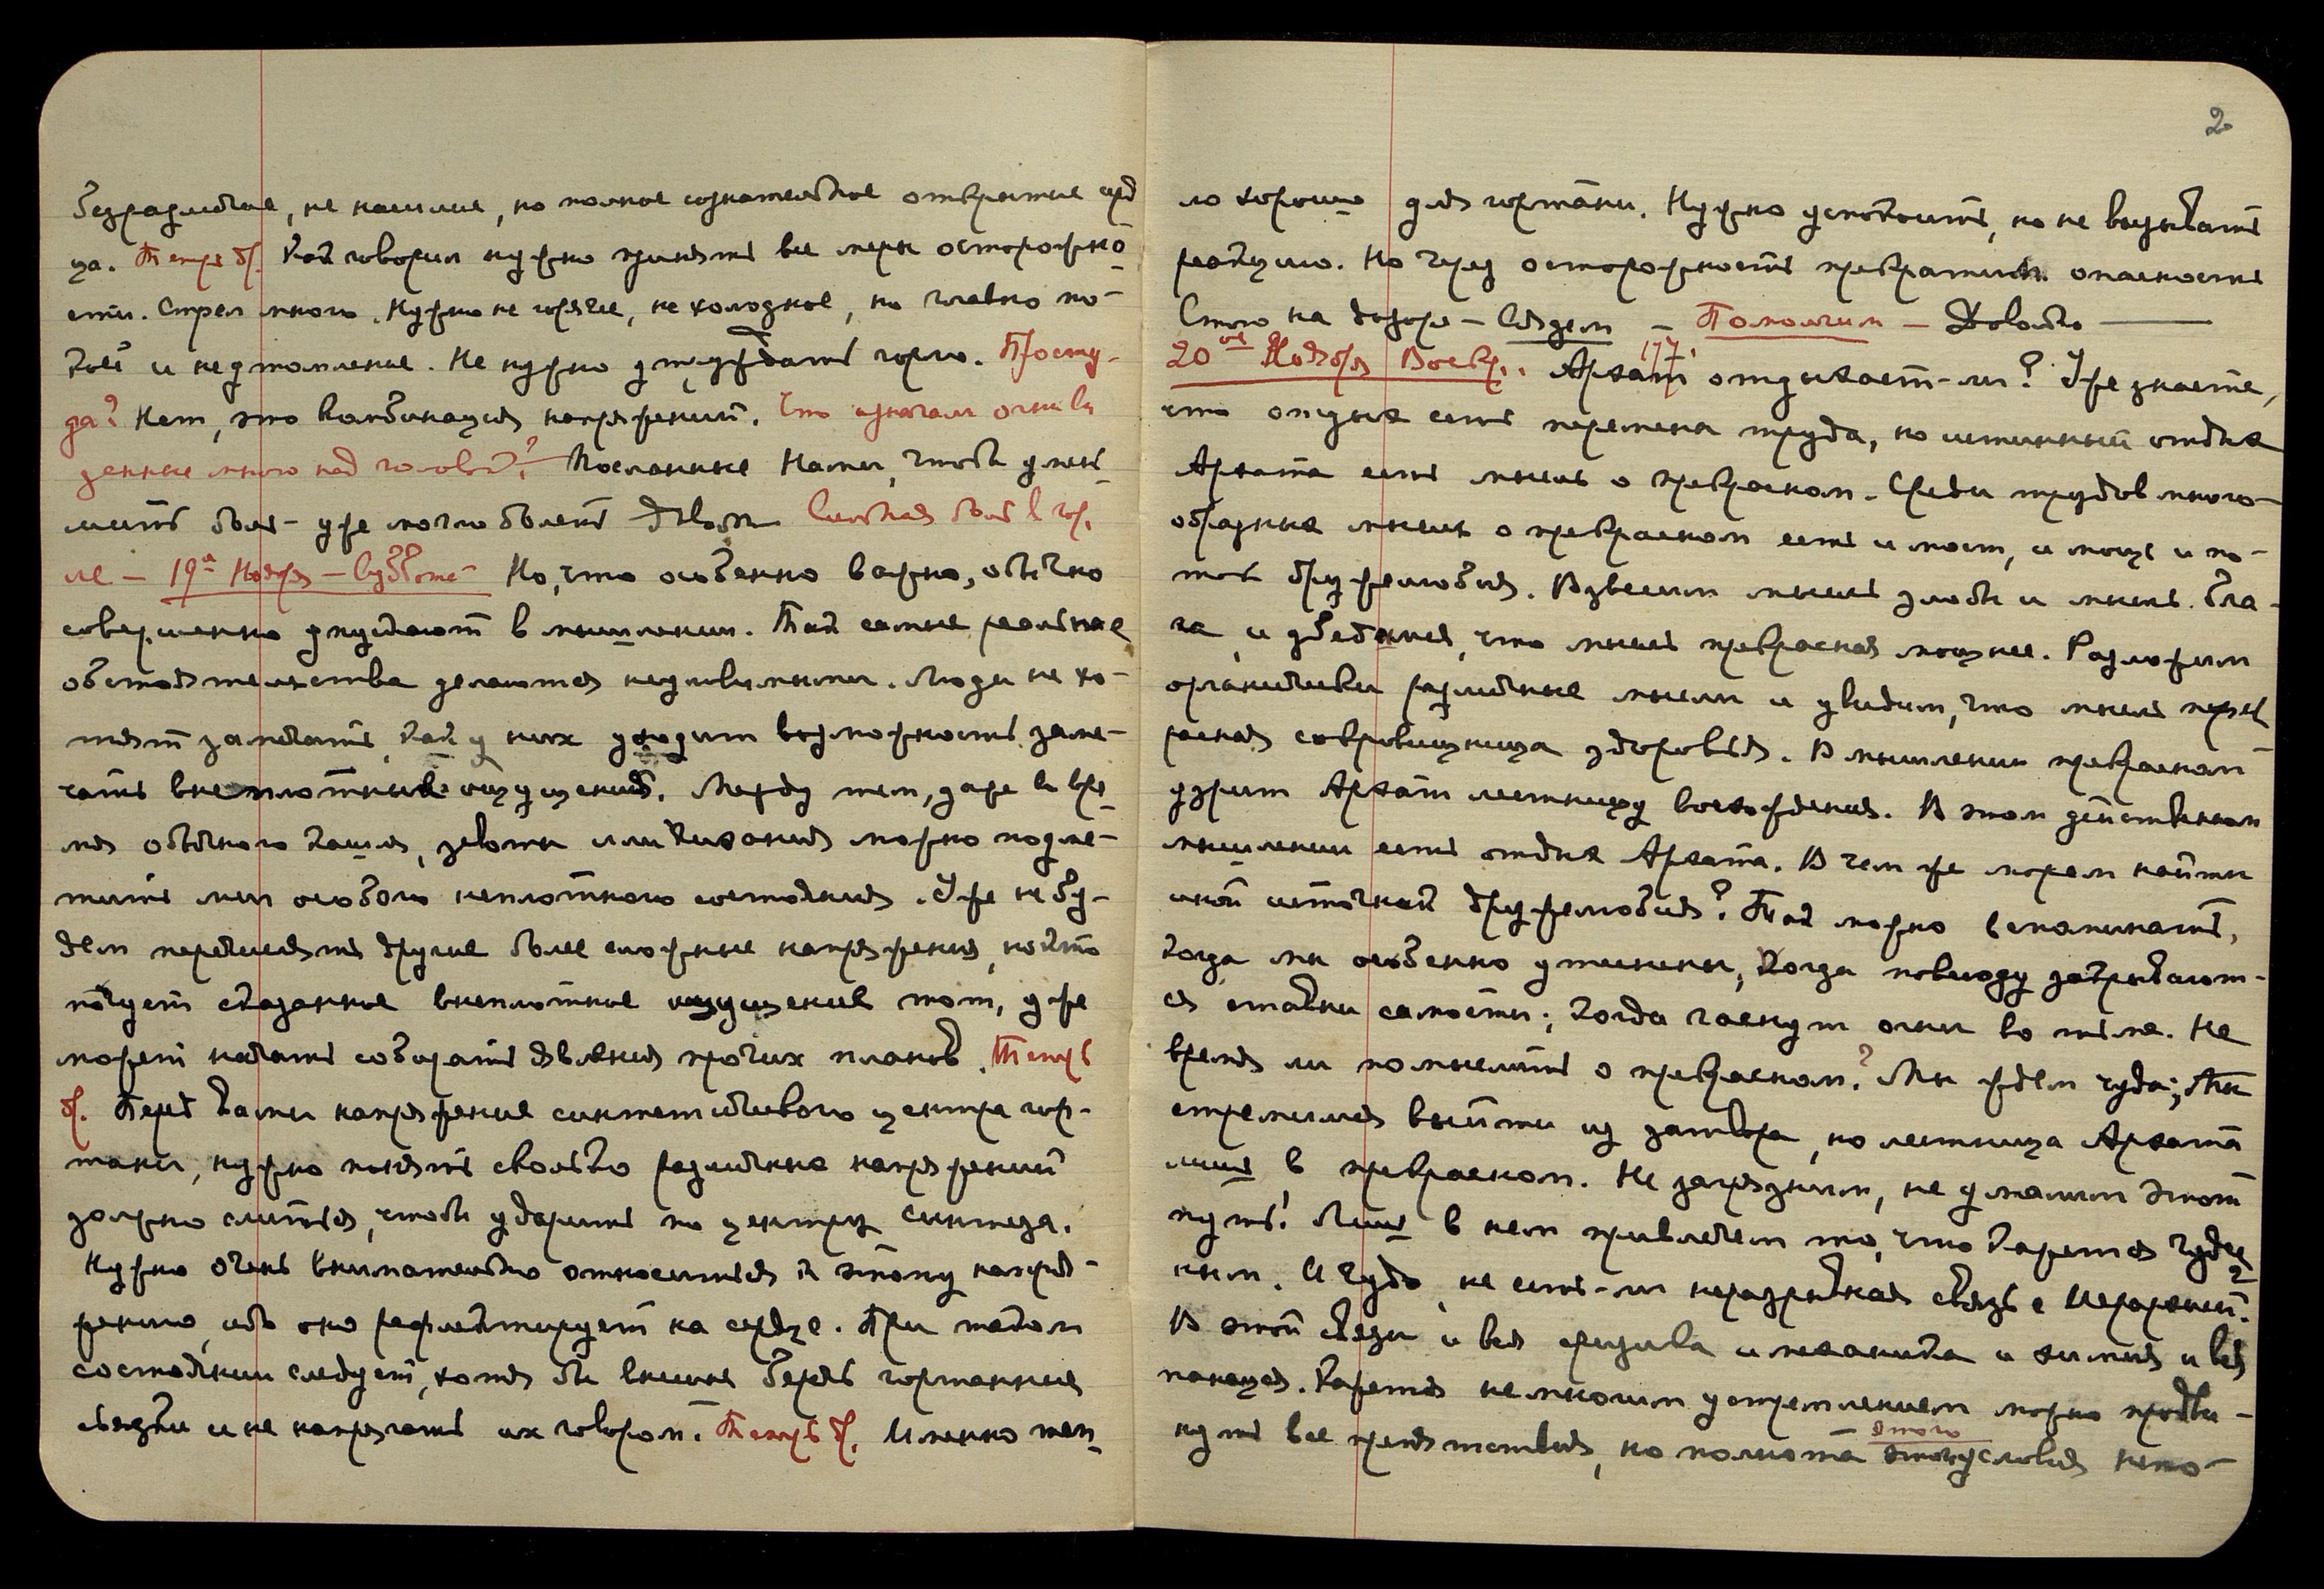 безразличие, не насилие, но полное сознательное открытие серд
ца. Теперь б. Как говорил нужно принять все меры осторожно
сти. Стрел много. Нужно не горячее, не холодное, но главно по-
кой и неутомление. Не нужно утруждать горло. Просту-
да? Нет, это комбинация напряжений. Что означали огни ви
денные мною над головой? Посланные Нами, чтобы умень
шить боль - уже могло болеть Довольно Сильная боль в гор,
ле - 19ое Ноября - Суббота - Но, что особенно важно, обычно
совершенно упускают в мышлении. Так самые реальные
обстоятельства делаются неуловимыми. Люди не хо-
тят замечать, как у них уходит возможность заме-
чать внеплотные ощущения. Между тем, даже во вре
мя обычного кашля, зевоты или чихания можно подме-
тить миг особого неплотного состояния. Уже не бу-
дем перечислять другие более сложные напряжения, но кто
почует сказанное внеплотное ощущение тот, уже
может начать собирать явления прочих планов. Теперь
б. Перед вами напряжение синтетического центра гор-
тани, нужно понять сколько различных напряжений
должно слиться, чтобы ударить по центру синтеза.
Нужно очень внимательно относиться к этому напря-
жению, ибо оно рефлектирует на сердце. При таком
состоянии следует, хотя бы внешне беречь гортанные
связки и не напрягать их говором. Теперь б. Именно теп
2
ло хорошо для гортани. Нужно успокоить, но не вызывать
реакцию. Но через осторожность прекратим опасность
Стою на дозоре - Сядем - Помолчим - Довольно
20ое Ноября Воскр. 177. Архат отдыхает-ли? Уже знаете,
что отдых есть перемена труда, но истинный отдых
Архата есть мысль о прекрасном. Среди трудов много-
образных мысль о прекрасном есть и мост, и мощь и по-
ток дружелюбия. Взвесим мысль злобы и мысль бла-
га, и убедимся, что мысль прекрасная мощнее. Разложим
органически различные мысли и увидим, что мысль прек
расная сокровищница здоровья. В мышлении прекрасном
узрит Архат лестницу восхождения. В этом действенном
мышлении есть отдых Архата. В чем же можем найти
иной источник дружелюбия? Так можно вспоминать,
когда мы особенно утеснены, когда повсюду закрывают-
ся ставни самости; когда гаснут огни во тьме. Не
время ли помыслить о прекрасном? Мы ждем чуда; Мы
стремимся выйти из затвора, но лестница Архата
лишь в прекрасном. Не загрязним, не умалим этот
путь! Лишь в нем привлечем то, что кажется чудес
ным. И чудо, не есть-ли неразрывная связь с Иерархией?
В этой связи и вся физика и механика и химия и вся
панацея. Кажется немногим устремлением можно продви-
нуть все препятствия, но полнота этого условия непо-